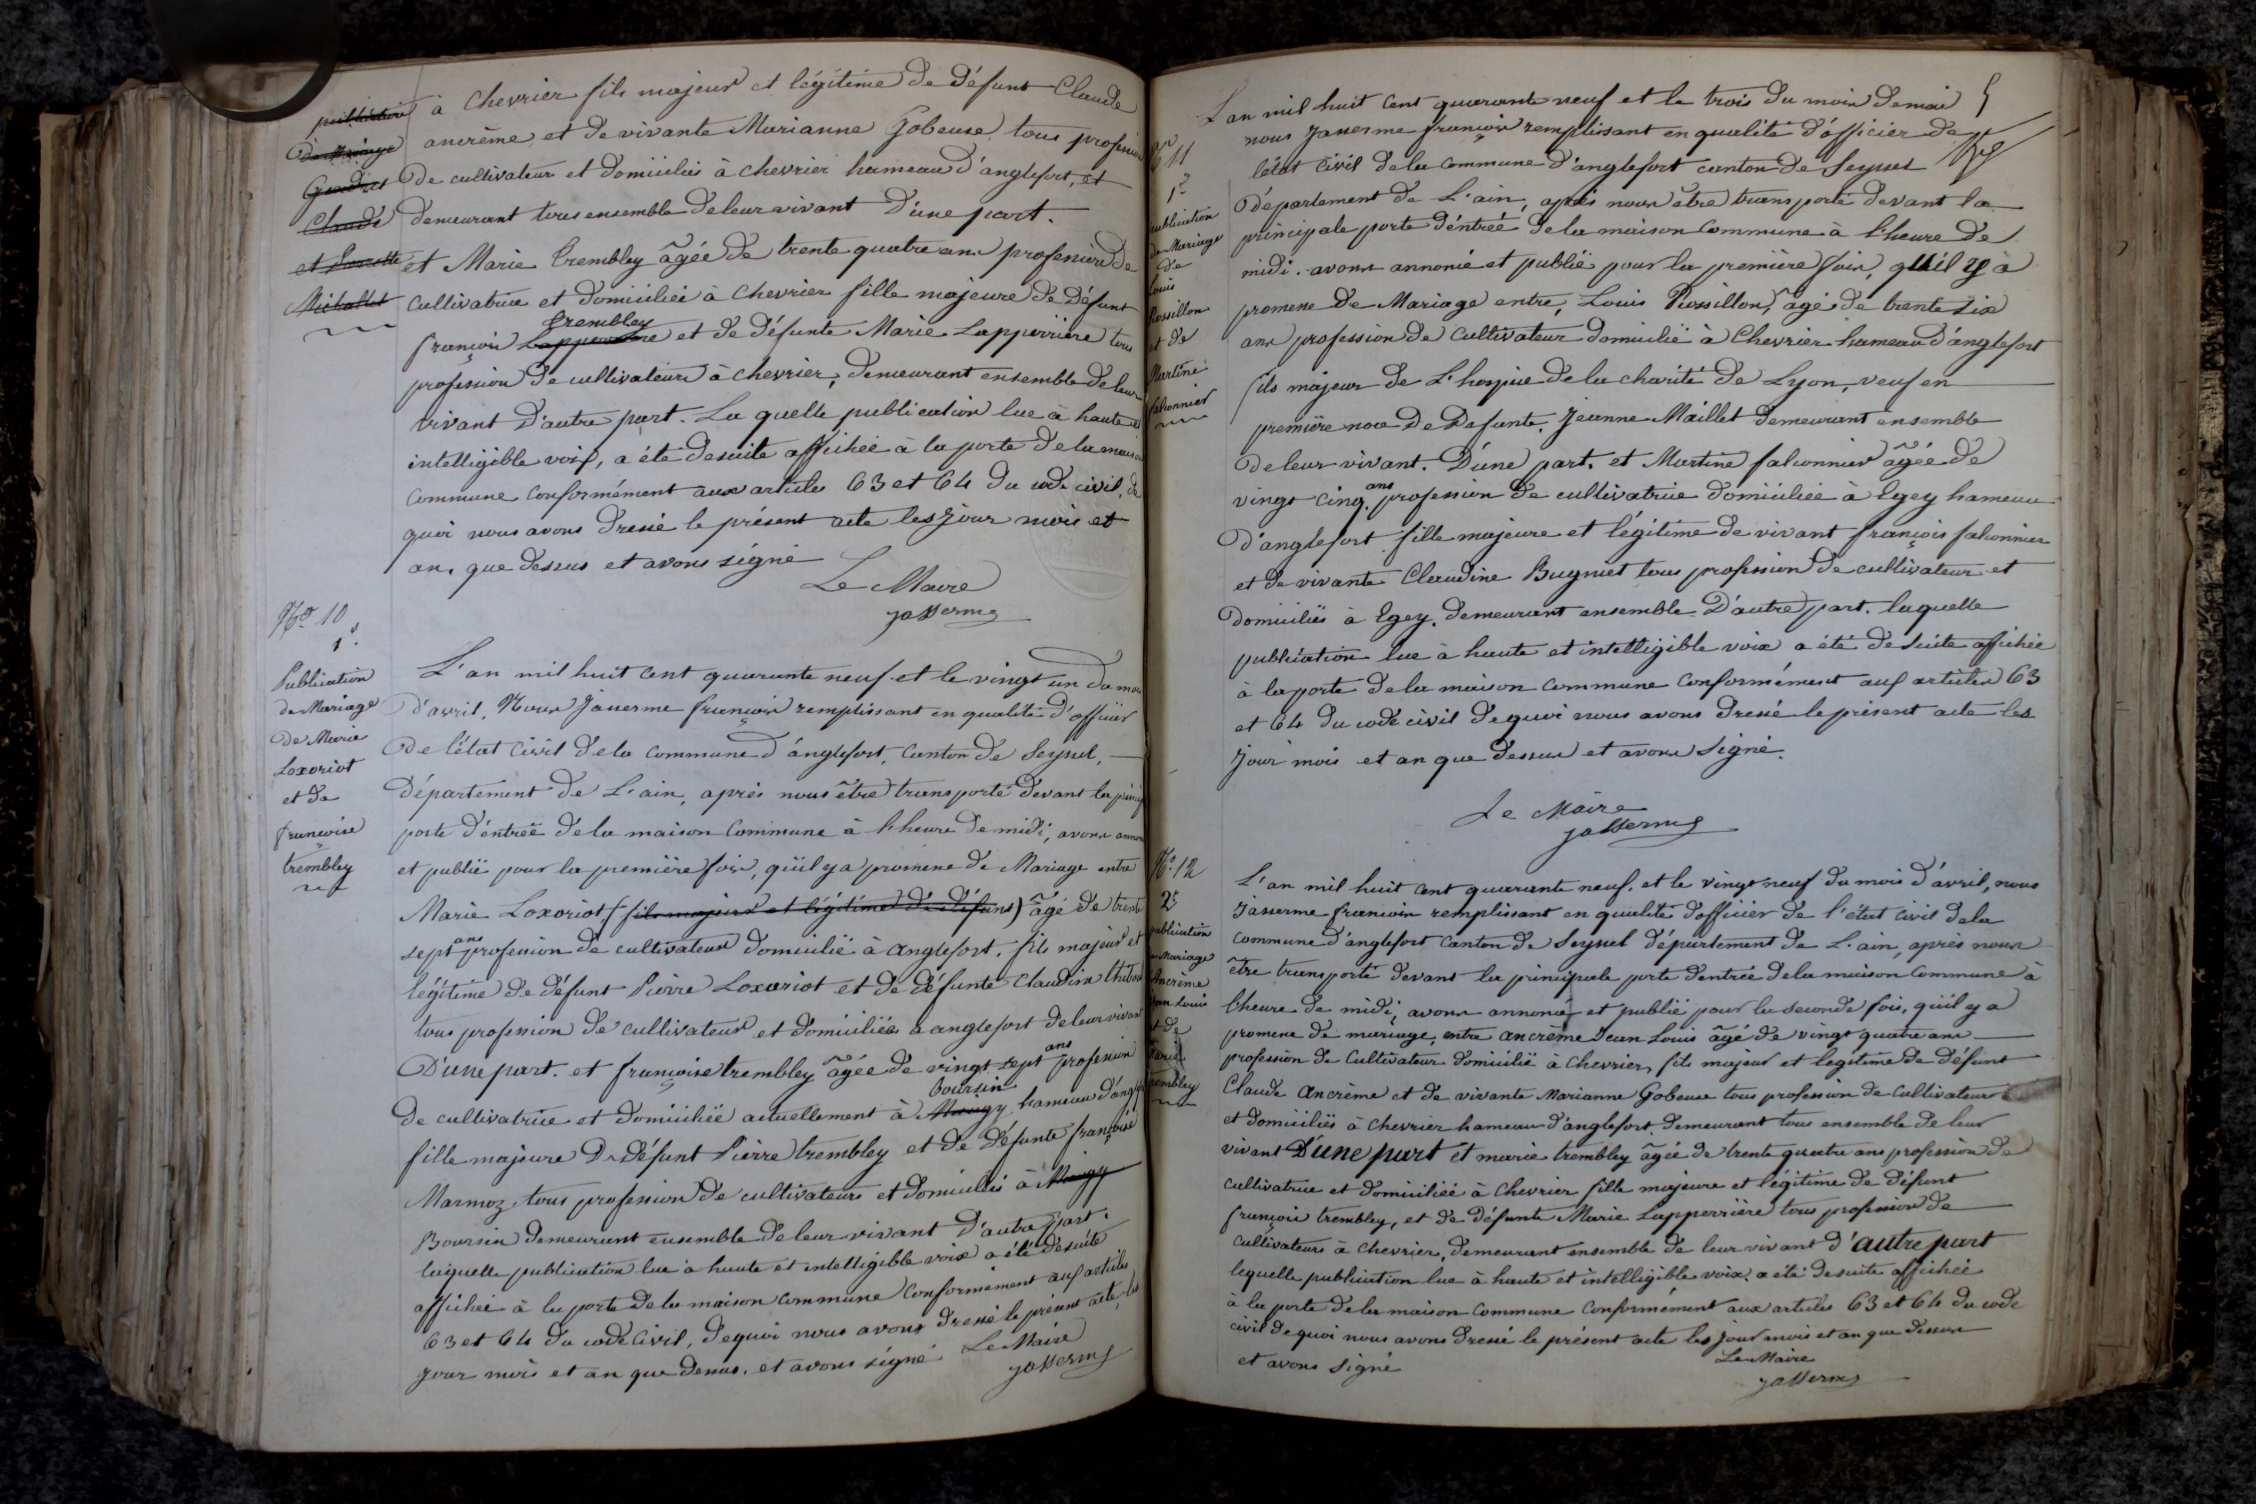 publication
de Mariage
Claude
à Chevrier fils majeur et légitime de Défunt Claude
ancrême, et de vivante Marianne Gobeuse, tous profession
De cultivateur et Domiciliés à chevrier hameau d'anglefort, et
demeurant tous ensemble de leur vivant D'une part.
et Marie Trembley âgée de trente quatre ans profession de
cultivatrice et domiciliée à Chevrier fille majeure de Défunt
trembley
françois et de défunte Marie Lapperrière tous
profession de cultivateurs à chevrier, demeurant ensemble de leur
vivant D'autre part. La quelle publication lue à haute et
intelligible voix, a été desuite affichée à la porte de la maison
commune conformément aux articles 63 et 64 du code civil, de
quoi nous avons Dressé le présent acte les jour mois et
an, que dessus et avons signé
Le Maire
jasserme
No. 10
1e.
Publication
de Mariage
De Marie
Loxoriot
et de
françoise
trembley
L'an mil huit cent quarante neuf et le vingt un du mois
D'avril, Nous Jasserme françois remplissant en qualité d'officier
De l'état civil de la commune d'anglefort, canton de Seyssel,
Département de L'ain, après nous être transporté devant la
porte d'éntréé de la maison commune à l'heure de midi, avons
et publié pour la première fois, qu'il y a promesse de Mariage entre
Marie Loxoriot (fils majeur et légitime de défunt) âgé de trente
ans
sept profession de cultivateur domicilié à anglefort, fils majeur et
légitime de défunt Pierre Loxoriot et de défunte Claudine
tous profession de cultivateurs et domiciliés à anglefort de leur vivant
D'une part. et françoise trembley âgée de vingt sept ans profession
Boursin
de cultivatrice et domiciliée actuellement à hameau d'anglefort
fille majeure De défunt Pierre trembley et de Défunte françoise
Marmoz, tous profession de cultivateurs et domiciliés à
Boursin demeurant ensemble de leur vivant D'autre part.
laquelle publication lue à haute et intelligible voix a été desuite
affichée à la porte de la maison commune conformément aux articles
63 et 64 du code civil, dequoi nous avons dressé le présent acte, les
jour mois et an que dessus, et avons signé Le Maire
jasserme
5
11
1e
publication
de Mariage
de
Louis
Rossillon
et de
Martine
falconnier
L'an mil huit cent quarante neuf et le trois du mois de mai
nous Jasserme françois remplissant en qualité d'officier de
l'état civil de la commune d'anglefort canton de Seyssel
Département de L'ain, après nous être transporté devant la
principale porte d'éntréé de la maison commune à l'heure de
midi, avons annoncé et publié pour la première fois, qu'il y à
promesse de Mariage entre, Louis Rossillon, âgé de trente six
ans profession de cultivateur domicilié à Chevrier hameau d'anglefort
fils majeur de L'hospice de la charité de Lyon, veuf en
première noce De Defunte, Jeanne Maillet demeurant ensemble
de leur vivant. D'une part. et Martine falconnier âgée de
vingt cinq ans profession de cultivatrice domiciliée à Egey hameau
D'anglefort fille majeure et légitime de vivant françois falconnier
et de vivante Claudine Bugniet tous profession de cultivateur et
domiciliés à Egey, demeurant ensemble D'autre part. laquelle
publication lue à haute et intelligible voix a été de suite affichée
à la porte de la maison commune conformément aux articles 63
et 64 du code civil dequoi nous avons dressé le présent acte les
jour mois et an que dessus et avons signé.
Le Maire
jasserme
No. 12
2e
publication
Mariage
Ancrême
Jean Louis
et de
Marie
trembley
L'an mil huit cent quarante neuf, et le vingt neuf du mois d'avril, nous
Jasserme françois remplissant en qualité d'officier de l'état civil de la
commune d'anglefort canton de Seyssel département de L'ain, après nous
être transporté devant la principale porte d'entrée de la maison commune à
l'heure de midi, avons annoncé et publié pour la seconde fois, qu'il y a
promesse de mariage, entre ancrême Jean Louis âgé de vingt quatre ans
profession de cultivateur domicilié à chevrier, fils majeur et legitime de défunt
Claude Ancrême et de vivante Marianne Gobeuse tous profession de cultivateurs
et domiciliés à chevrier hameau d'anglefort demeurant tous ensemble de leur
vivant D'une part et marie trembley âgée de trente quatre ans profession de
cultivatrice et domiciliée à Chevrier fille majeure et légitime de défunt
françois trembley, et de défunte Marie Lapperrière tous profession de
cultivateurs à chevrier, demeurant ensemble de leur vivant d'autre part
lequelle publication lue à haute et intelligible voix a été desuite affichée
à la porte de la maison commune conformément aux articles 63 et 64 du code
civil de quoi nous avons dressé le présent acte les jour mois et an que dessus
et avons signé
Le Maire
jasserme